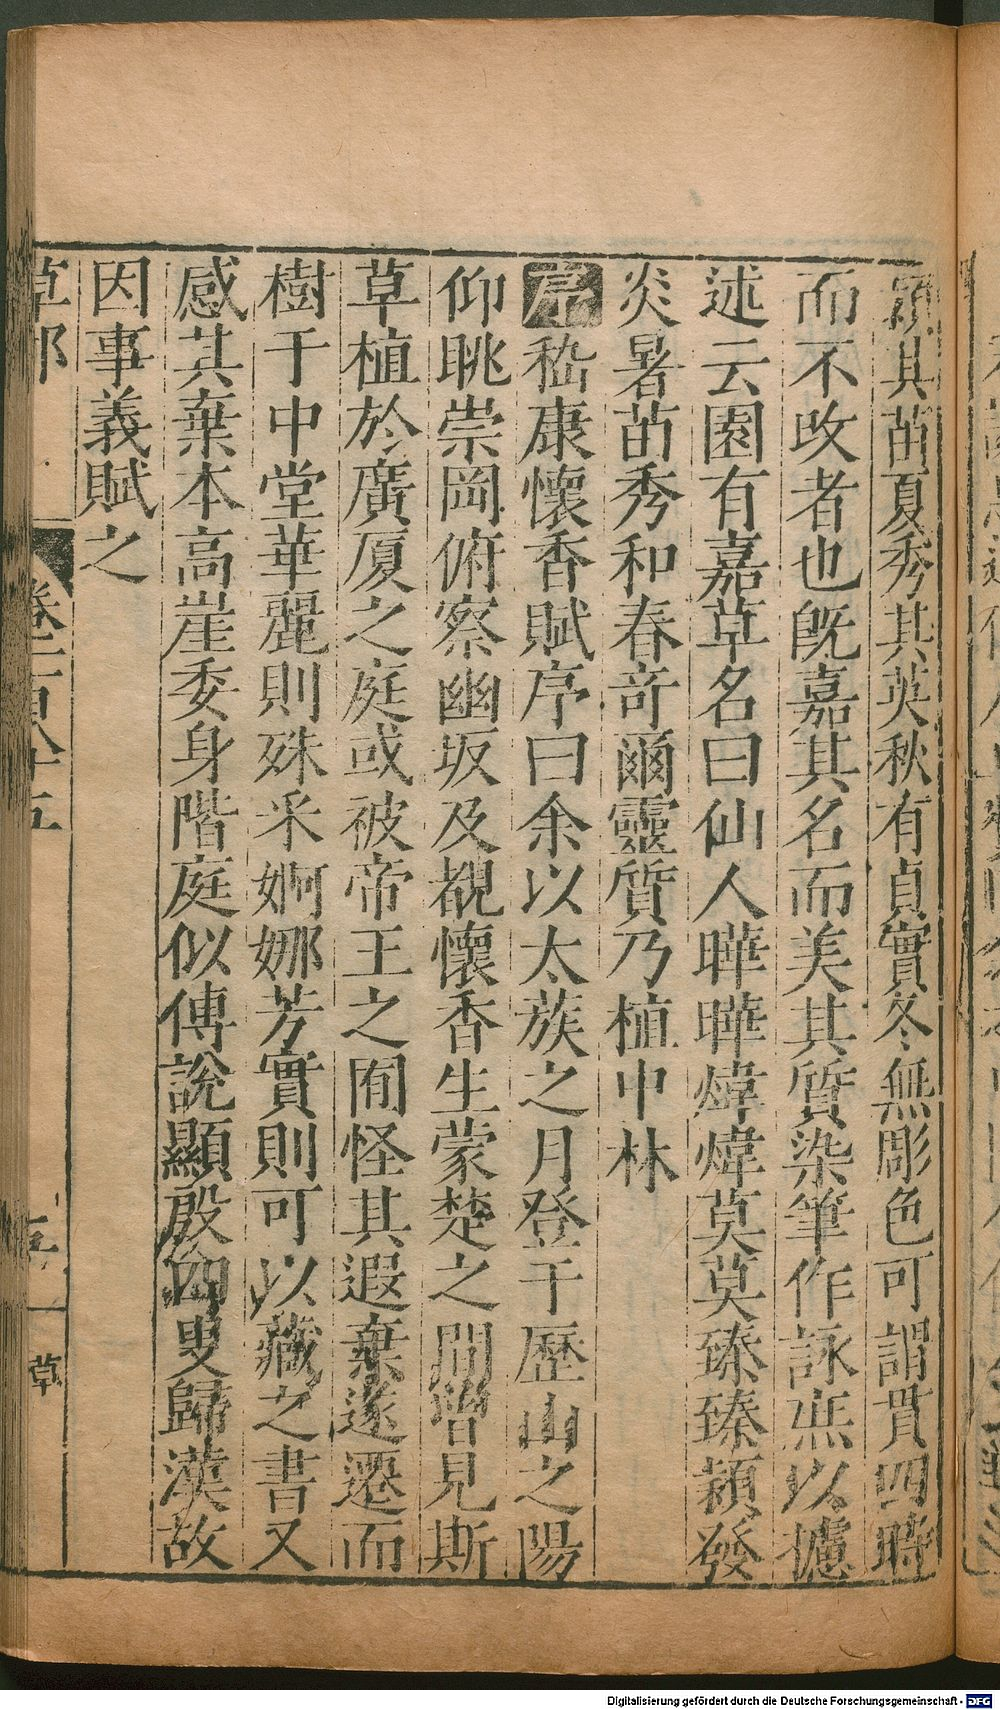 穎其苗夏秀其英秋有貞實冬無彫色可謂貫四時
而不改者也旣嘉其名而美其質染筆作詠庶以攄
述云園有嘉草名曰仙人曄曄煒煒莫莫臻臻穎發
炎暑苗秀和春竒爾靈質乃植中林
序嵇康懷香賦序曰余以太蔟之月登于歷山之陽
仰眺崇岡俯察幽坂及覩懷香生蒙楚之間曾見斯
草植於廣厦之庭或被帝王之囿怪其遐棄遂遷而
樹于中堂華麗則殊采婀娜芳實則可以藏之書又
感其棄本高崖委身階庭似傅說顯殷四叟歸漢故
因事義賦之
草部 卷一百八十五 五 草
Digitalisierung gefördert durch die Deutsche Forschungsgemeinschaft - DFG